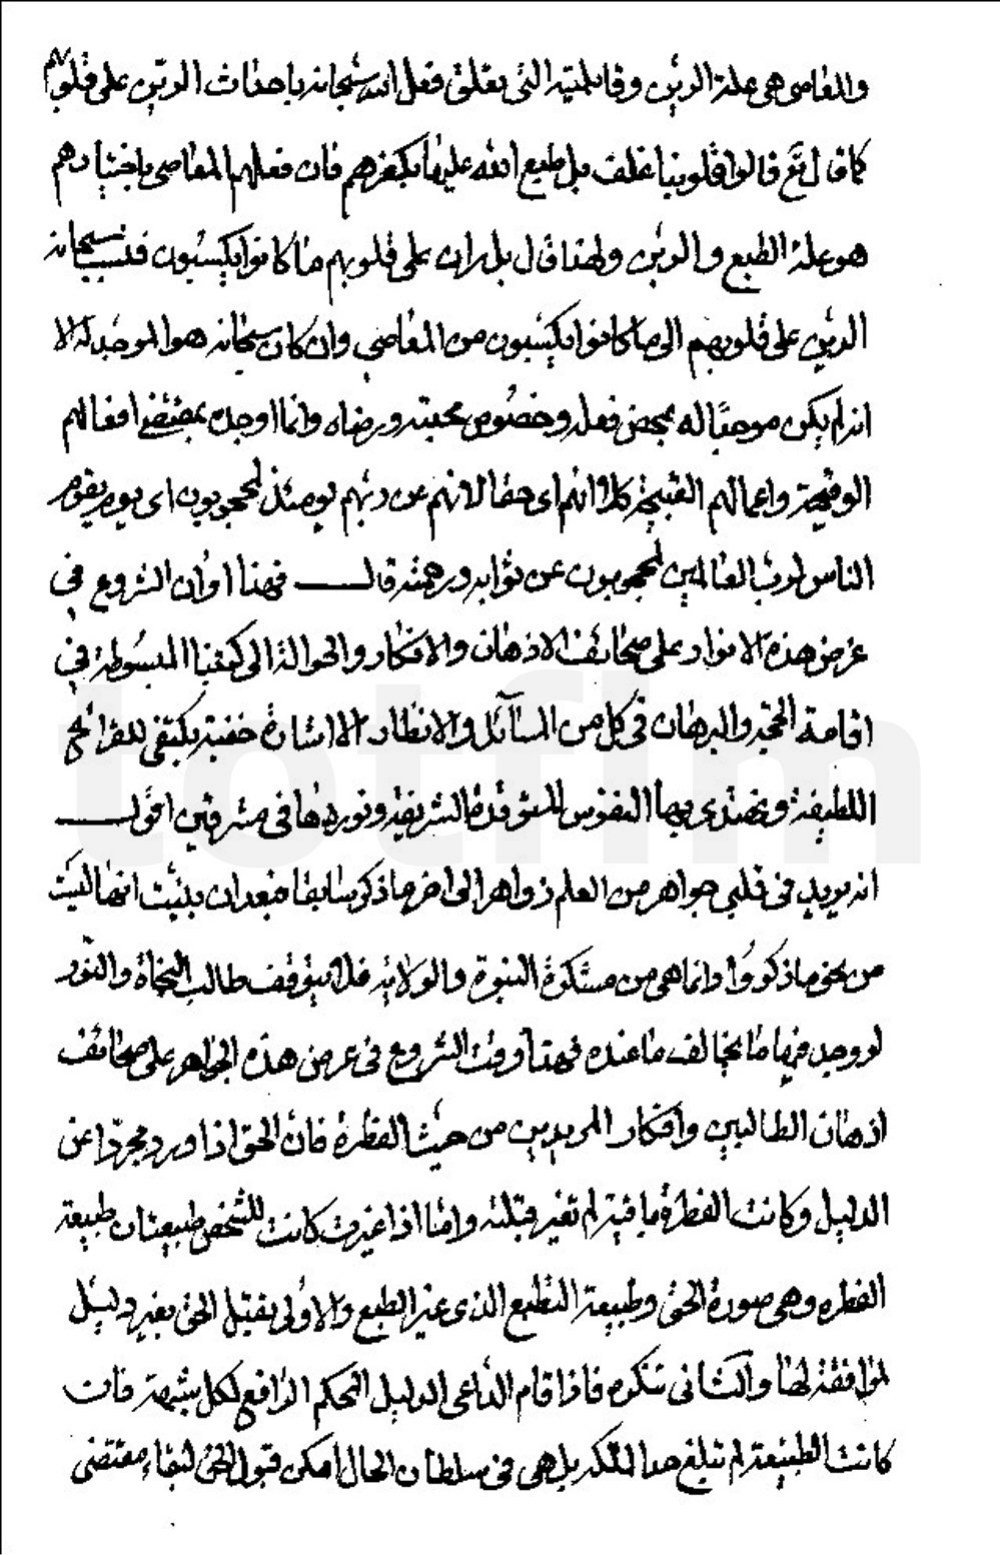 والمعاصى هى علة الرين وقابليته التى تعلق فعل الله سبحانه باحداث الرين على قلوبهم
كما قال تع قالوا قلوبنا غلف بل طبع الله عليها بكفرهم فان فعلهم المعاصى باختيارهم
هو علة الطبع والرين ولهذا قال بل ران على قلوبهم ما كانوا يكسبون فنسب سبحانه
الرين على قلوبهم الى ما كانوا يكسبون من المعاصى وان كان سبحانه هو الموجد له الا
انه لم يكن موجدا له بمحض فعله وخصوص محبته ورضاه وانما اوجده بمقتضى افعالهم
الوقيحة واعمالهم القبيحة كلا انهم اى حقا لانهم عن ربهم يومئذ لمحجوبون اى يوم يقوم
الناس لرب العالمين لمحجوبون عن ثوابه ورحمته قال فهذا اوان الشروع فى
عرض هذه الانوار على صحائف الاذهان والافكار والحوالة الى كتبنا المبسوطة فى
اقامة الحجة والبرهان فى كل من المسائل والانظار الا اشارة خفية يكتفى للقرائح
اللطيفة ويهتدى بها النفوس المتوقدة الشريفة ونوردها فى مشرقين اقول
انه يريد فى قلبى جواهر من العلم زواهر الى اخر ما ذكر سابقا فبعد ان بينت انها ليست
من نحو ما ذكروا وانما هى من مشكوة النبوة والولاية فلا يتوقف طالب النجاة والنور
لو وجد فيها ما يخالف ما عنده فهذا وقت الشروع فى عرض هذه الجواهر على صحائف
اذهان الطالبين وافكار المريدين من حيث الفطرة فان الحق اذا ورد مجردا عن
الدليل وكانت الفطرة باقية لم تغير قبلته واما اذا غيرت كانت للشخص طبيعتان طبيعة
الفطره وهى صورة الحق وطبيعة التطبع الذى غير الطبع والاولى يقبل الحق بغير دليل
لموافقته لها والثانى تنكره فاذا اقام الداعى الدليل المحكم الرافع لكل شبهة فان
كانت الطبيعة لم تبلغ حد الملكة بل هى فى سلطان الحال امكن قبول الحق لبقاء مقتضى